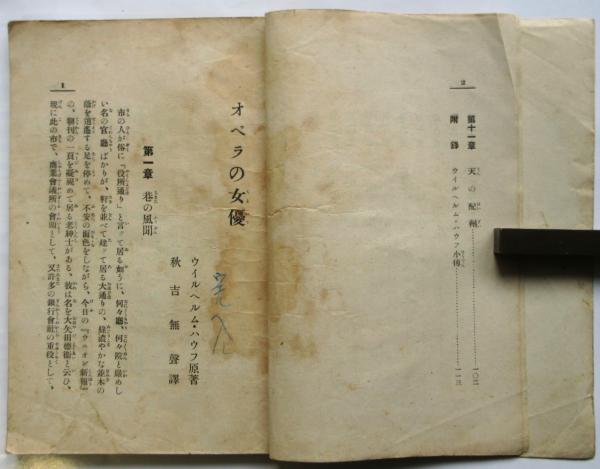 2
第十一章 天の配剤……一〇二
附錄 ウイルヘルム・ハウフ小傳……一一三
オペラの女優
ウイルヘルム・ハウフ原著
秋吉無聲譯
第一章 巷の風聞
市の人が俗に『役所通り』と言つて居る如うに、何々廳、何々院と嚴めし
い名の官廳ばかりが、軒を並べて建つて居る大通りの、綠濃やかな並木の
蔭を逍遙する足を停めて、不安の面色をしながら、今日の『ウニオン新報』
の、朝刊の一頁を凝視めて居る老紳士がある。彼は名を大矢田德衞と云ひ、
現に此の市で、商業會議所の會頭として、又許多の銀行會社の重役として、
1